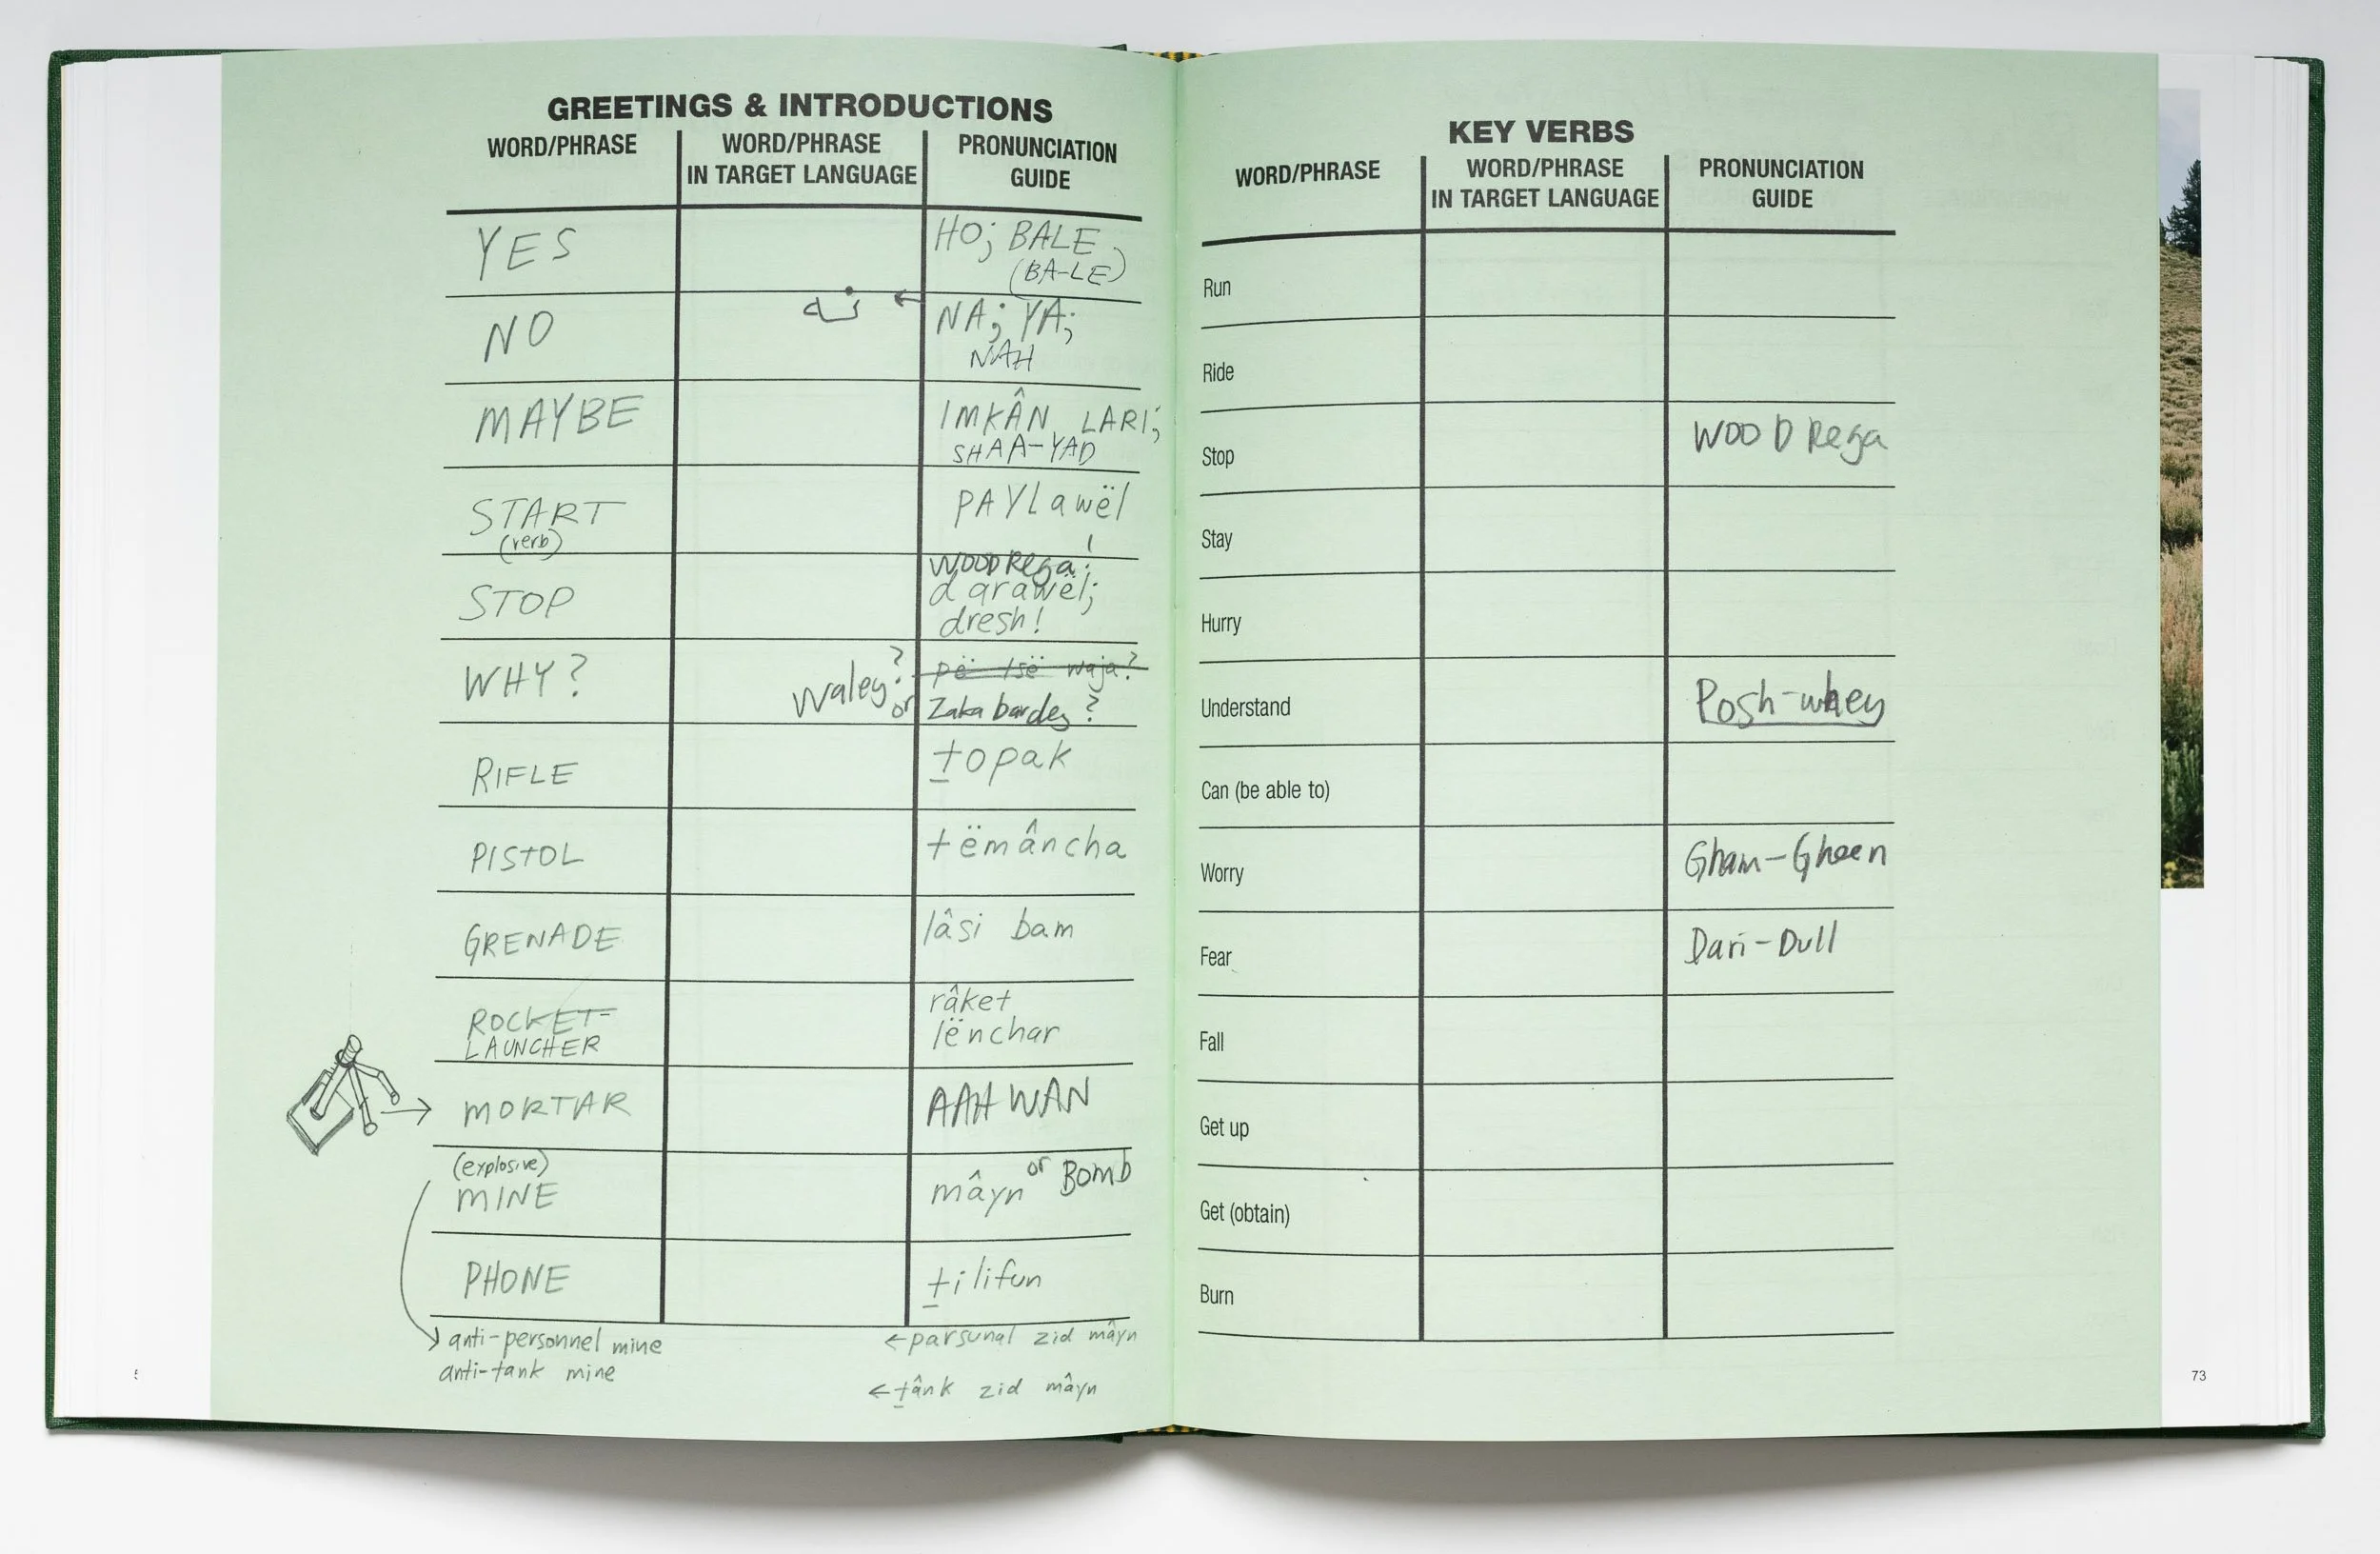 GREETINGS & INTRODUCTIONS
WORD/PHRASE
WORD/PHRASE
IN TARGET LANGUAGE
PRONUNCIATION
GUIDE
YES
HO; BALE
(BA-LE)
NO
نه ←
NA; YA;
NAH
MAYBE
IMKÂN LARI;
SHAA-YAD
START
(verb)
PAYLawël
STOP
WOODRega!;
darawël;
dresh!
WHY?
Waley? or
pë tsë waja?
Zaka bardey?
RIFLE
topak
PISTOL
tëmâncha
GRENADE
lâsi bam
ROCKET-
LAUNCHER
râket
lënchar
→ MORTAR
AAH WAN
(explosive)
MINE
mâyn or Bomb
PHONE
tilifun
anti-personnel mine
← parsunal zid mâyn
anti-tank mine
← tânk zid mâyn
KEY VERBS
WORD/PHRASE
WORD/PHRASE
IN TARGET LANGUAGE
PRONUNCIATION
GUIDE
Run
Ride
Stop
WOODRega
Stay
Hurry
Understand
Posh-whey
Can (be able to)
Worry
Gham-Gheen
Fear
Dari-Dull
Fall
Get up
Get (obtain)
Burn
73